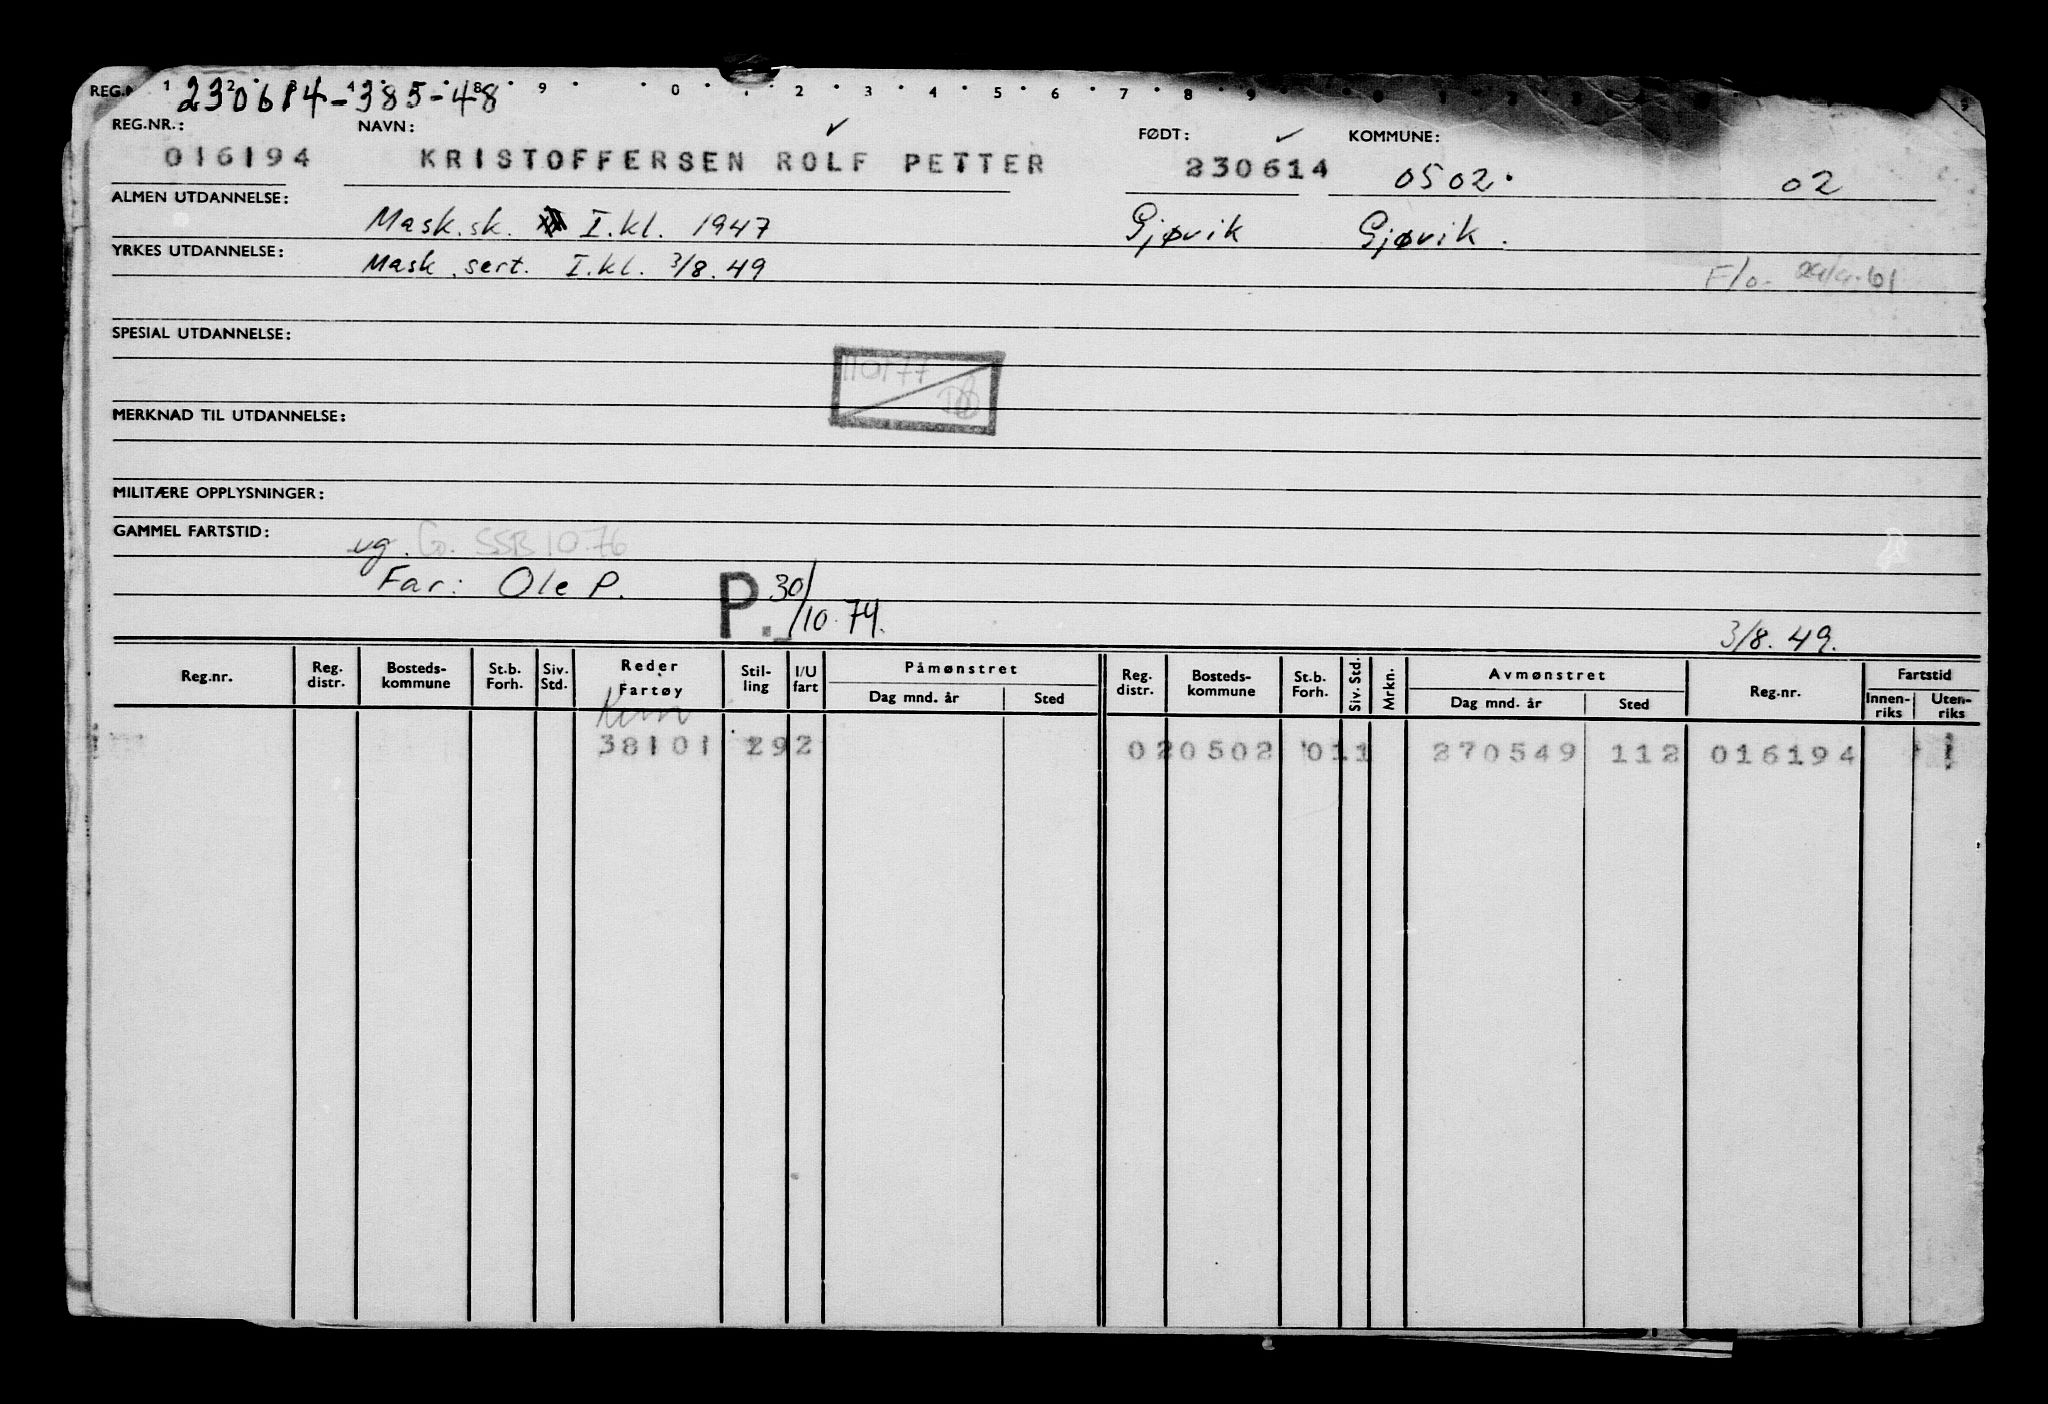 REG.N 230614-385-48
REG.NR.: NAVN: FØDT: KOMMUNE:
016194 KRISTOFFERSEN ROLF PETTER 230614 0502. 02
ALMEN UTDANNELSE: Mask.sk. I.kl. 1947 Gjøvik Gjøvik.
YRKES UTDANNELSE: Mask. sert. I.kl. 3/8.49
SPESIAL UTDANNELSE:
110177
MERKNAD TIL UTDANNELSE:
MILITÆRE OPPLYSNINGER:
GAMMEL FARTSTID: ug. SSB 10.76
Far: Ole P. P. 30/10.74.
3/8.49.
Reg.nr. Reg. distr. Bosteds-kommune St.b. Forh. Siv. Std. Reder Fartøy Stil-ling I/U fart Påmønstret Dag mnd. år Sted Reg. distr. Bosteds-kommune St.b. Forh. Siv. Std. Mrkn. Avmønstret Dag mnd. år Sted Reg.nr. Fartstid Innen-riks Uten-riks
38101 292 020502 011 270549 112 016194 1